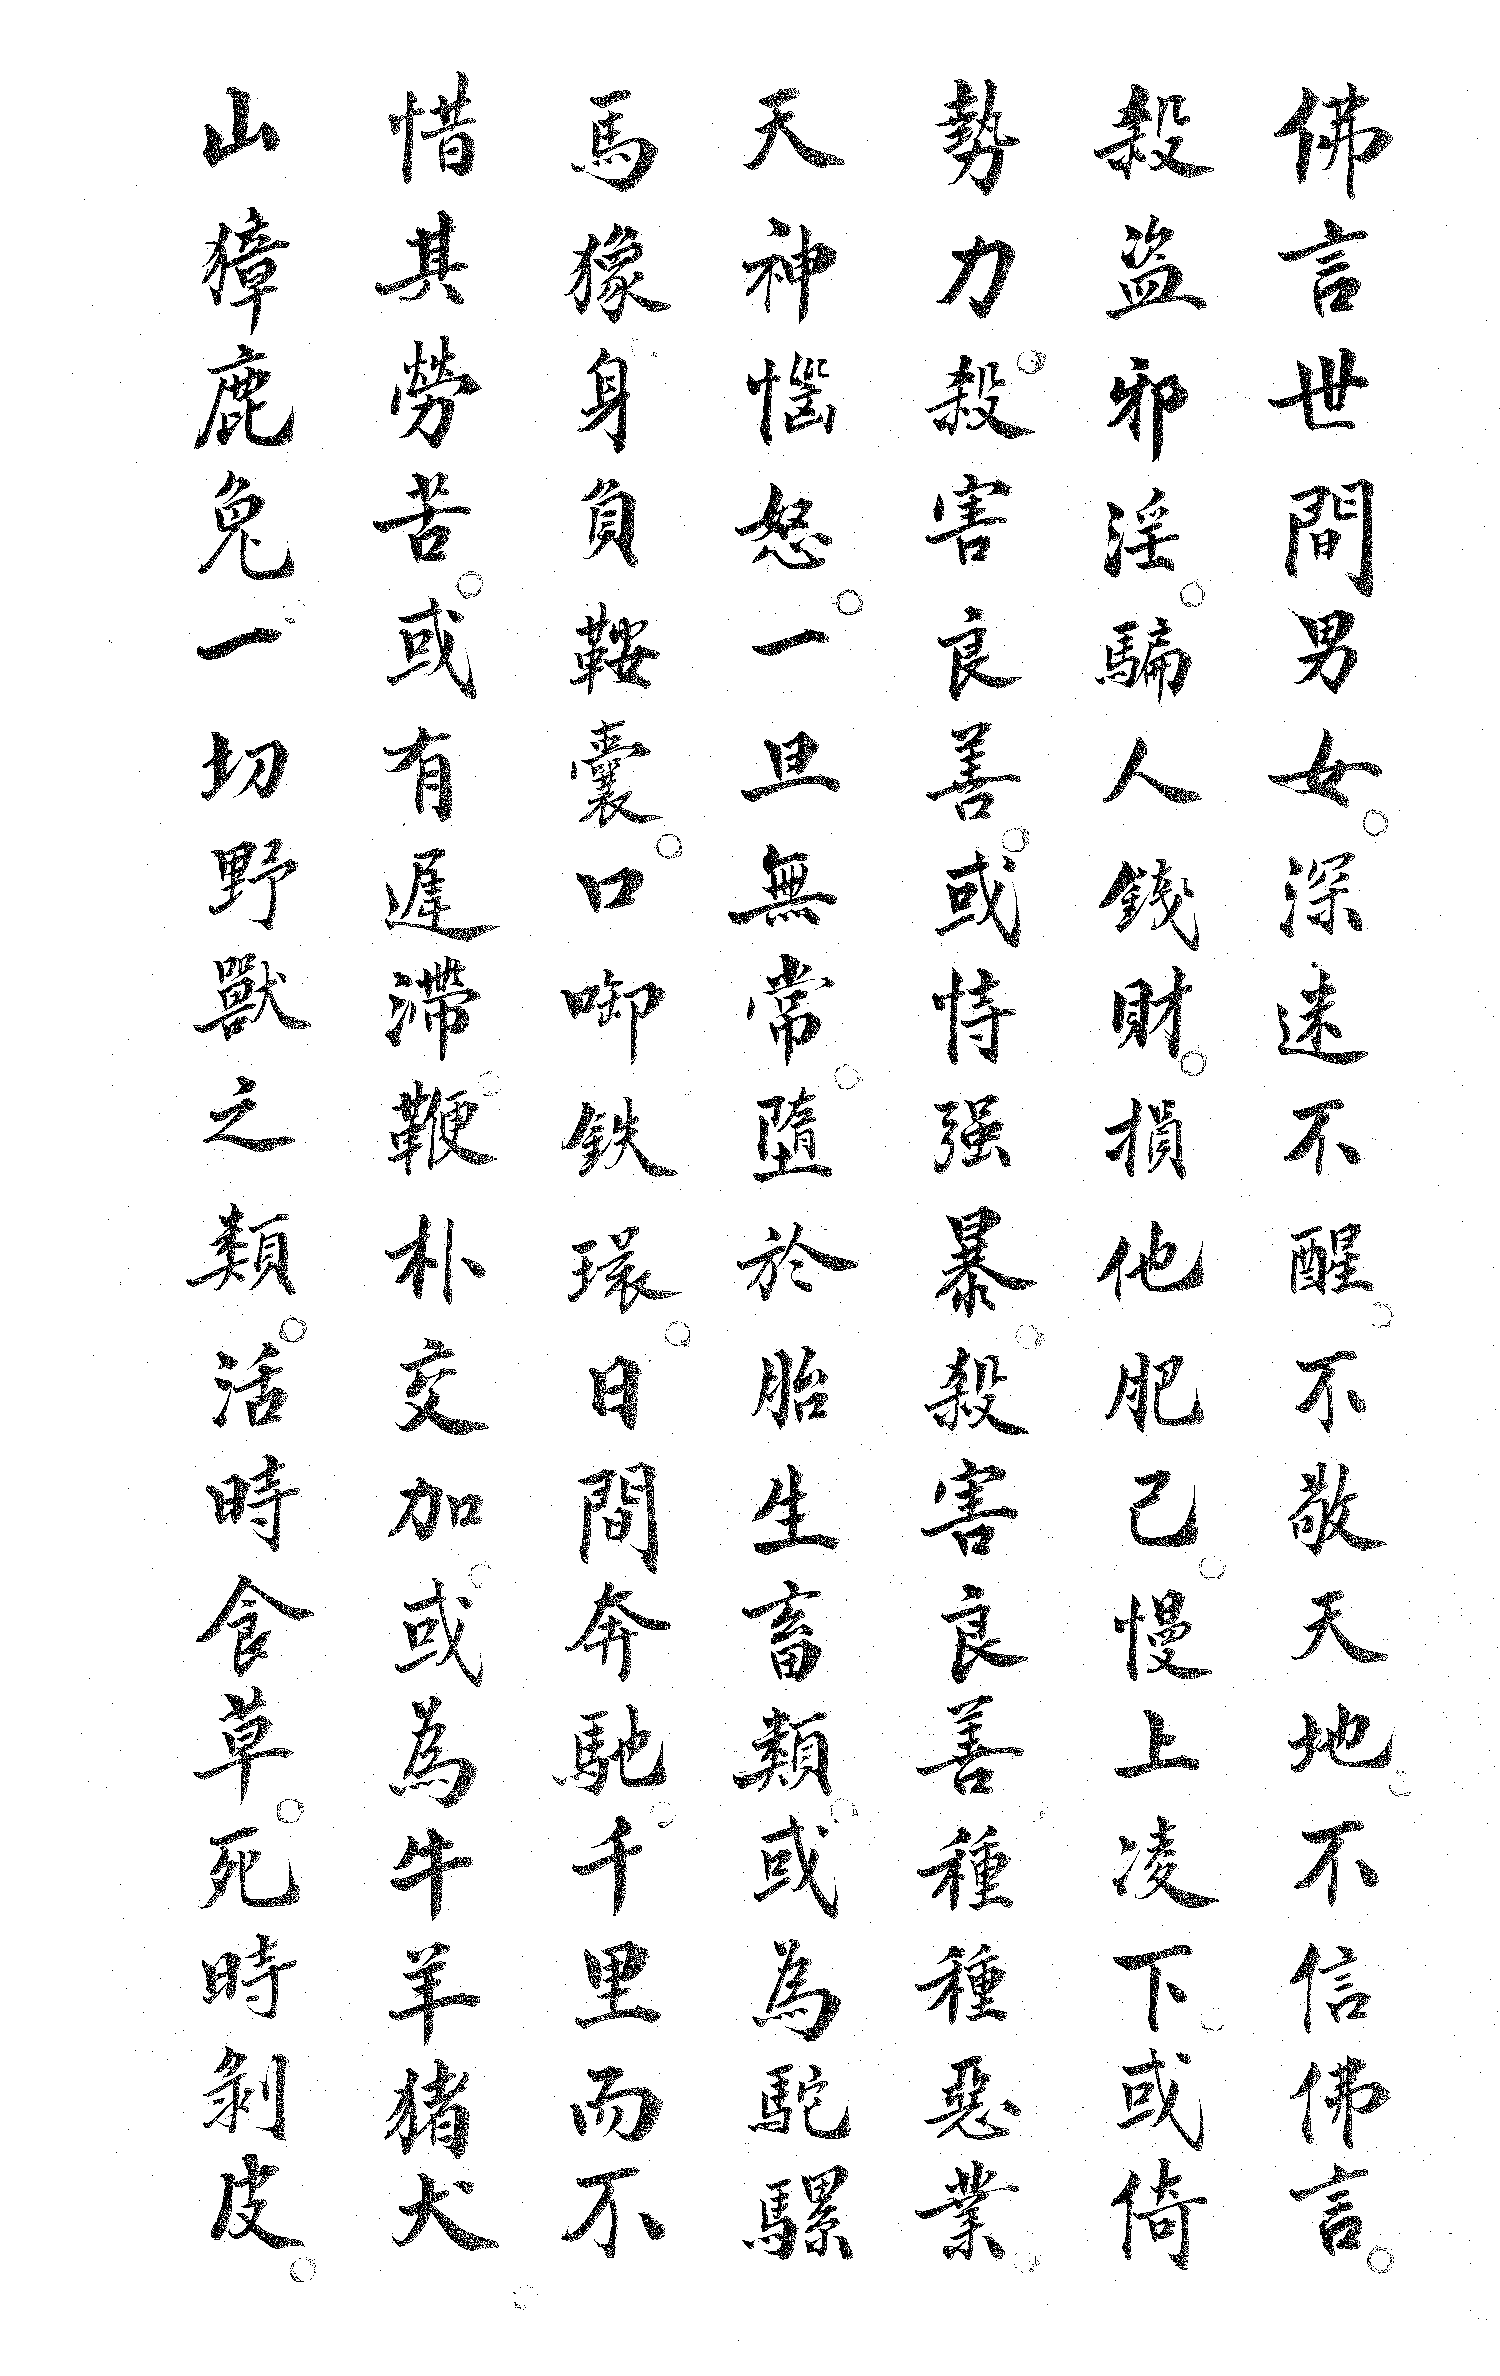 佛言世間男女。深迷不醒。不敬天地。不信佛言。
殺盜邪淫。騙人錢財。損他肥己。慢上凌下。或倚
勢力。殺害良善。或恃强暴。殺害良善。種種惡業。
天神惱怒。一旦無常。墮於胎生畜類。或為駝騾
馬㺄。身負鞍囊。口啣鉄環。日間奔馳。千里而不
惜其勞苦。或有遲滯。鞭朴交加。或為牛羊猪犬。
山獐鹿兔。一切野獸之類。活時食草。死時剝皮。